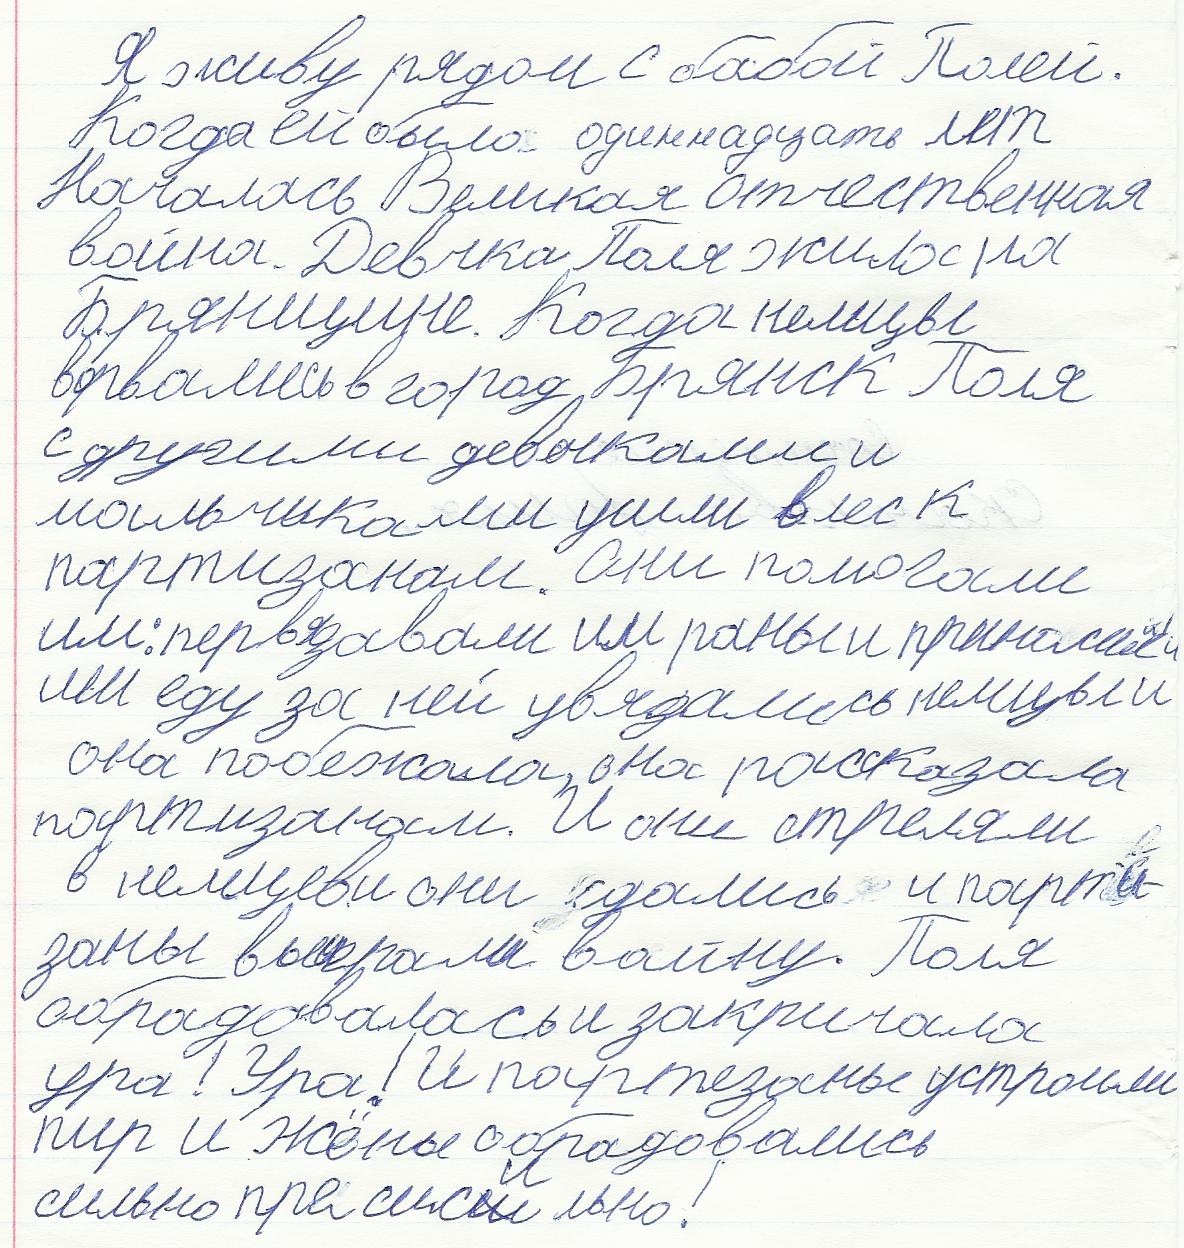 Я живу рядом с бабой Полей.
Когда ей было одиннадцать лет
Началась Великая отчественная
война. Девчка Поля жила на
Брянищине. Когда немицы
ворвались в город Брянск Поля
с другими девочками и
мальчиками ушли в лес к
партизанам. Они помогали
им: первязавали им раны и приносили
им еду за ней увядались немицы и
она побежала, она рассказала
партизанам. И они стреляли
в немицев и они сдались и парти-
заны выиграли войну. Поля
обрадовалась и закричала
ура! Ура! И партезаны устроили
пир и жёны обрадовались
сильно пра сильно!